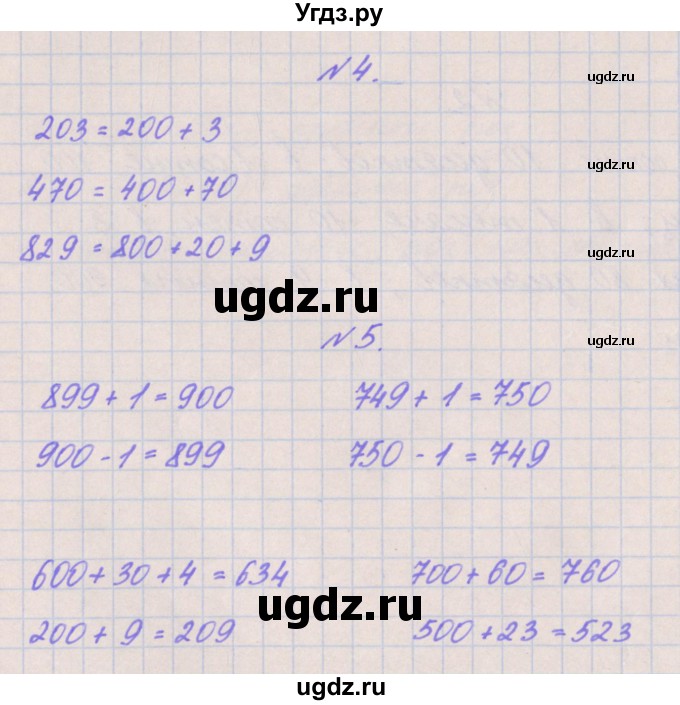 Угдз.ру
№4.
ugdz.ru
203 = 200 + 3
ugdz.ru
470 = 400 + 70
829 = 800 + 20 + 9
ugdz.ru
ugdz.ru
№5.
ugdz.ru
899 + 1 = 900 749 + 1 = 750
900 - 1 = 899 750 - 1 = 749
600 + 30 + 4 = 634 700 + 60 = 760
ugdz.ru
200 + 9 = 209 500 + 23 = 523
ugdz.ru